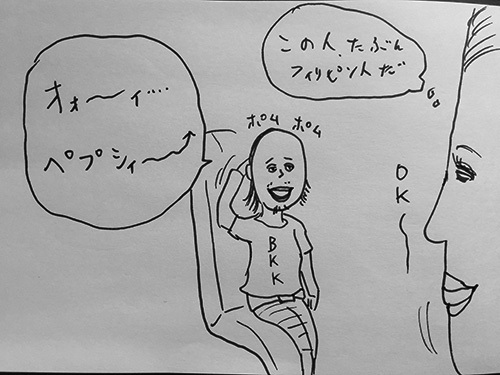 オォ〜ィ....
ペプシィ〜
ポム ポム
BKK
この人、たぶん
フィリピン人だ
OK〜